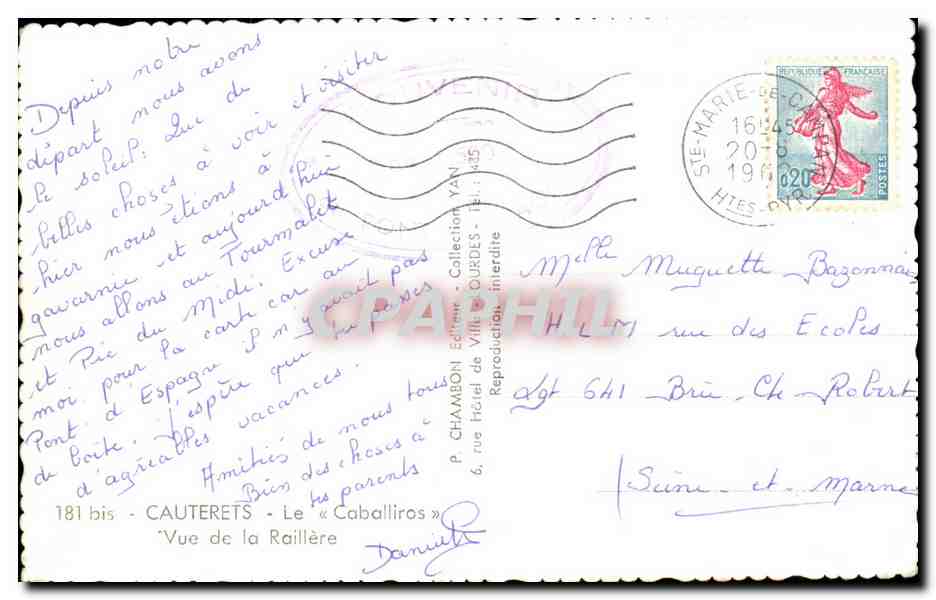 Depuis notre
départ nous avons
le soleil. Que de
belles choses à voir et visiter
hier nous étions à
gavarnie et aujourd'hui
nous allons au Tourmalet
et Pic du Midi. Excuse
moi pour la carte car au
Pont d'Espagne il n'y avait pas
de boîte. J'espère que tu passes
d'agréables vacances.
Amitiés de nous tous
Bien des choses à
tes parents
Danielle
181 bis - CAUTERETS - Le « Caballiros »
Vue de la Raillère
P. CHAMBON Editeur - Collection YAN
6, rue Hôtel de Ville - LOURDES - Tél.: 435
Reproduction interdite
SOUVENIR
STE-MARIE-DE-CAMPAN
16H45
20-8
196
HTES-PYR.
REPUBLIQUE FRANÇAISE
0,20
POSTES
Melle Muguette Bazonnais
H L M rue des Ecoles
Lgt 641 Brie Cte Robert
Seine-et-Marne
CPAPHIL